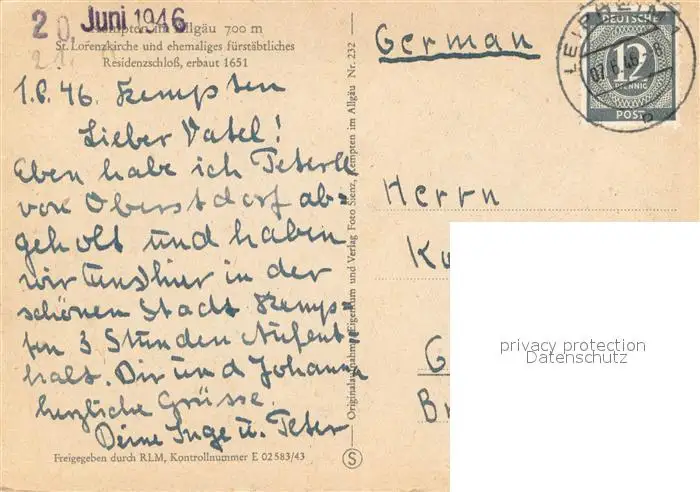 20. Juni 1946
Kempten im Allgäu 700 m
St. Lorenzkirche und ehemaliges fürstäbtliches
Residenzschloß, erbaut 1651
1.6.46. Kempten
Lieber Vatel!
Eben habe ich Peterle
von Oberstdorf ab=
geholt und haben
wir (uns) hier in der
schönen Stadt Kemp=
ten 3 Stunden Aufent
halt. Dir und Johanna
herzliche Grüsse.
Deine Inge u. Peter
Freigegeben durch RLM, Kontrollnummer E 02583/43
Originalaufnahme, Eigentum und Verlag Foto Sienz, Kempten im Allgäu Nr. 232
S
Germany
LEIPHEIM
07.6.46
DEUTSCHE
12
PFENNIG
POST
b
Herrn
Ku
G
Br
privacy protection
Datenschutz